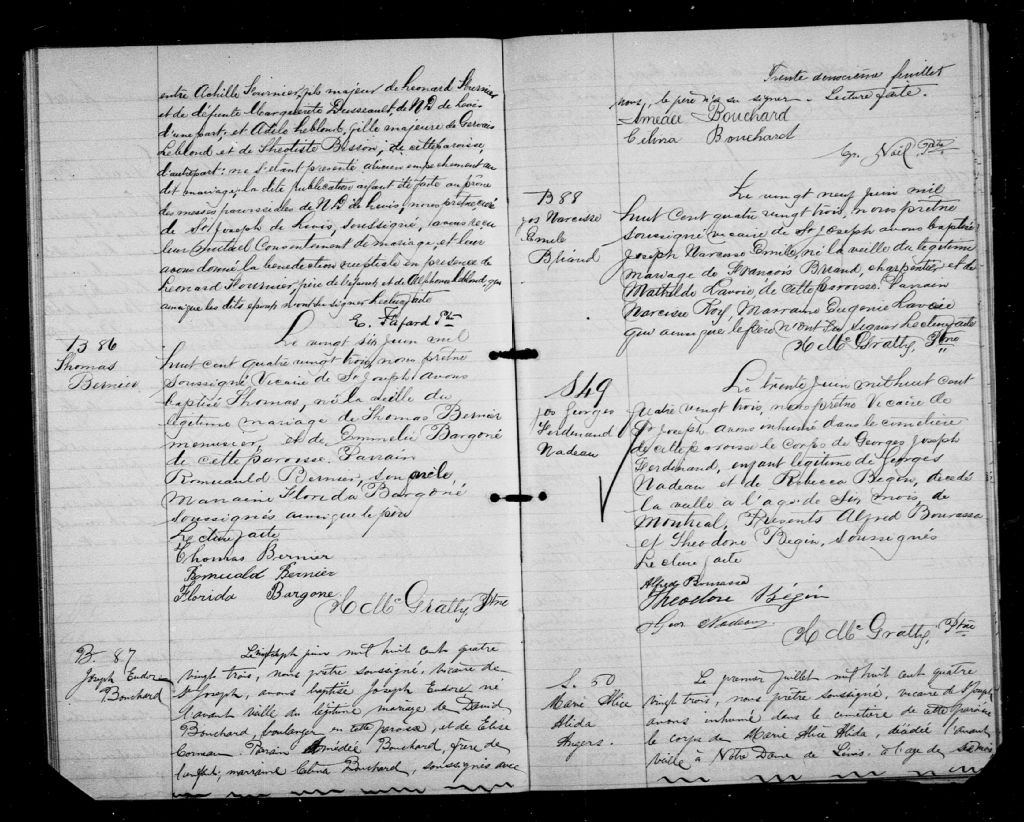 entre Achille Fournier, fils majeur de Leonard Fournier
et de défunte Marguerite Dussault, de N.D de Levis
d'une part, et Adèle Leblond, fille majeure de Gervais
Leblond et de Théotiste Bisson, de cette paroisse,
d'autre part; ne s'étant présenté aucun empechement au
dit mariage, la dite publication ayant été faite au prône
des messes paroissiales de N.D de Levis, nous prêtre, curé
de St Joseph de Levis, soussigné, avons reçu
leur mutuel consentement de mariage, et leur
avons donné la benediction nuptiale en presence de
Leonard Fournier, père de l'epoux, et de Alphonse Leblond, qui
ainsi que les dits epoux n'ont su signer. Lecture faite
E. Fafard Ptre
B 86
Thomas
Bernier
Le vingt six juin mil
huit cent quatre vingt trois, nous prêtre
soussigné Vicaire de St Joseph, avons
baptisé Thomas, né la veille du
légitime mariage de Thomas Bernier
menuisier, et de Emmelie Bargone
de cette paroisse. Parrain
Romuald Bernier, son oncle,
Marraine Florida Bargone
soussignés ainsi que le père
Lecture faite
Thomas Bernier
Romuald Bernier
Florida Bargone
H Mc Gratty, Ptre
B. 87
Joseph Eudore
Bouchard
Le vingt sept juin mil huit cent quatre
vingt trois, nous prêtre soussigné, vicaire de
St Joseph, avons baptisé Joseph Eudore, né
l'avant veille du légitime mariage de David
Bouchard, boulanger en cette paroisse, et de Elise
Parrain Amédée Bouchard, frère de
l'enfant; marraine Celina Bouchard, soussignés avec
Trente deuxième feuillet
nous, le père n'a su signer. Lecture faite.
Amédée Bouchard
Celina Bouchard
Ep. Noël, Ptre
B 88
Jos Narcisse
Emile
Briand
Le vingt neuf juin mil
huit cent quatre vingt trois, nous prêtre
soussigné vicaire de St Joseph avons baptisé
Joseph Narcisse Emile, né la veille du légitime
mariage de François Briand, charpentier, et de
Mathilde Lavoie, de cette paroisse. Parrain
Narcisse Roy, Marraine Eugenie Lavoie
qui ainsi que le père n'ont su signer. Lecture faite
H Mc Gratty, Ptre
S 49
Jos Georges
Ferdinand
Nadeau
Le trente juin mil huit cent
quatre vingt trois, nous prêtre Vicaire de
St Joseph avons inhumé dans le cimetière
de cette paroisse le corps de Georges Joseph
Ferdinand, enfant légitime de Georges
Nadeau et de Rebecca Begin, décédé
la veille a l'age de six mois, de
Montreal, Présents Alfred Bourassa
et Theodore Begin, soussignés
Lecture faite
Alfred Bourassa
Theodore Bégin
Geor Nadeau
H Mc Gratty, Ptre
S. 50
Marie Alice
Alida
Angers.
Le premier juillet mil huit cent quatre
vingt trois, nous prêtre soussigné, vicaire de St Joseph
avons inhumé dans le cimetière de cette paroisse
le corps de Marie Alice Alida, décédée l'avant
veille à Notre Dame de Lévis, à l'age de